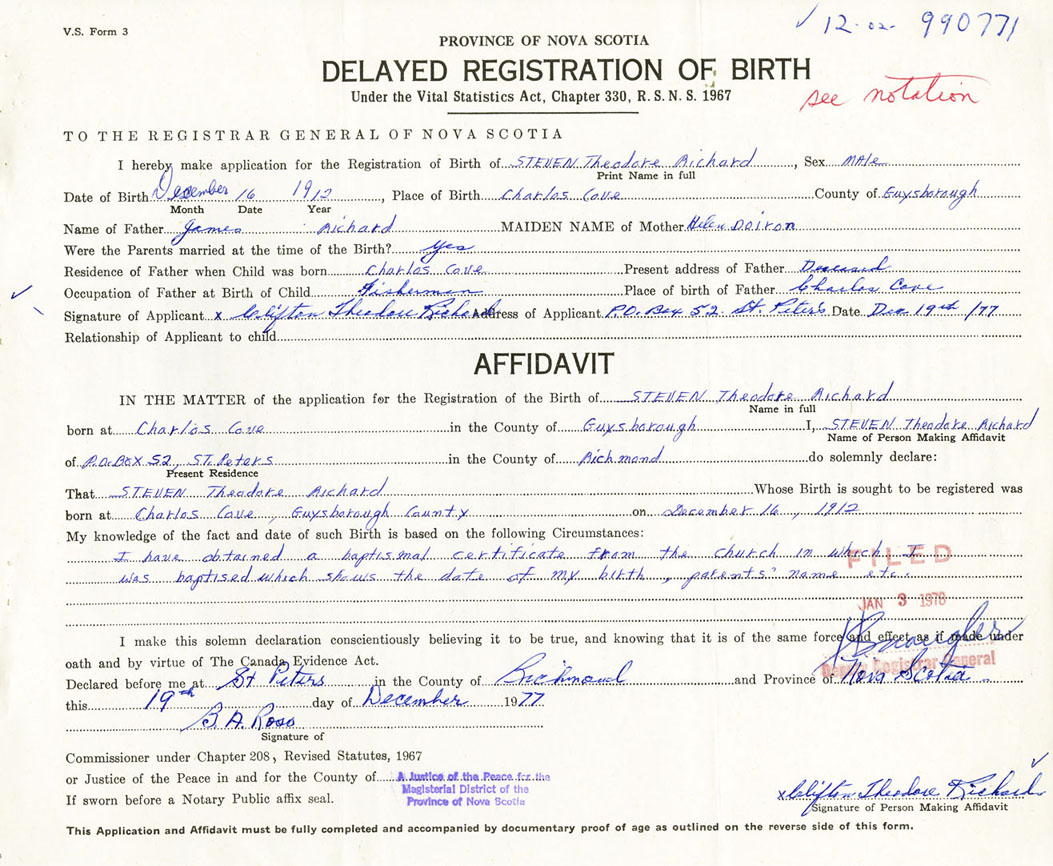 V.S. Form 3
12-02 990771
PROVINCE OF NOVA SCOTIA
DELAYED REGISTRATION OF BIRTH
Under the Vital Statistics Act, Chapter 330, R.S.N.S. 1967
see notation
TO THE REGISTRAR GENERAL OF NOVA SCOTIA
I hereby make application for the Registration of Birth of STEVEN Theodore Richard, Sex MAle
Print Name in full
Date of Birth December 16 1912, Place of Birth Charlos Cove County of Guysborough
Month Date Year
Name of Father James Richard MAIDEN NAME of Mother Helen Doiron
Were the Parents married at the time of the Birth? Yes
Residence of Father when Child was born Charlos Cove Present address of Father Deceased
Occupation of Father at Birth of Child Fisherman Place of birth of Father Charlos Cove
Signature of Applicant x Clifton Theodore Richard Address of Applicant P.O. Box 52 St. Peter's Date Dec 19th /77
Relationship of Applicant to child
AFFIDAVIT
IN THE MATTER of the application for the Registration of the Birth of STEVEN Theodore Richard
Name in full
born at Charlos Cove in the County of Guysborough I, STEVEN Theodore Richard
Name of Person Making Affidavit
of P.O. BOX 52, ST. Peters in the County of Richmond do solemnly declare:
Present Residence
That STEVEN Theodore Richard Whose Birth is sought to be registered was
born at Charlos Cove, Guysborough County on December 16, 1912
My knowledge of the fact and date of such Birth is based on the following Circumstances:
I have obtained a baptismal certificate from the church in which I
was baptised which shows the date of my birth, parents' name etc.
FILED
JAN 3 1978
I make this solemn declaration conscientiously believing it to be true, and knowing that it is of the same force and effect as if made under
oath and by virtue of The Canada Evidence Act.
Deputy Registrar General
Declared before me at St Peters in the County of Richmond and Province of Nova Scotia
this 19th day of December 1977
B. A. Ross
Signature of
Commissioner under Chapter 208, Revised Statutes, 1967
or Justice of the Peace in and for the County of A Justice of the Peace for the
Magisterial District of the
If sworn before a Notary Public affix seal. Province of Nova Scotia
x Clifton Theodore Richard
Signature of Person Making Affidavit
This Application and Affidavit must be fully completed and accompanied by documentary proof of age as outlined on the reverse side of this form.